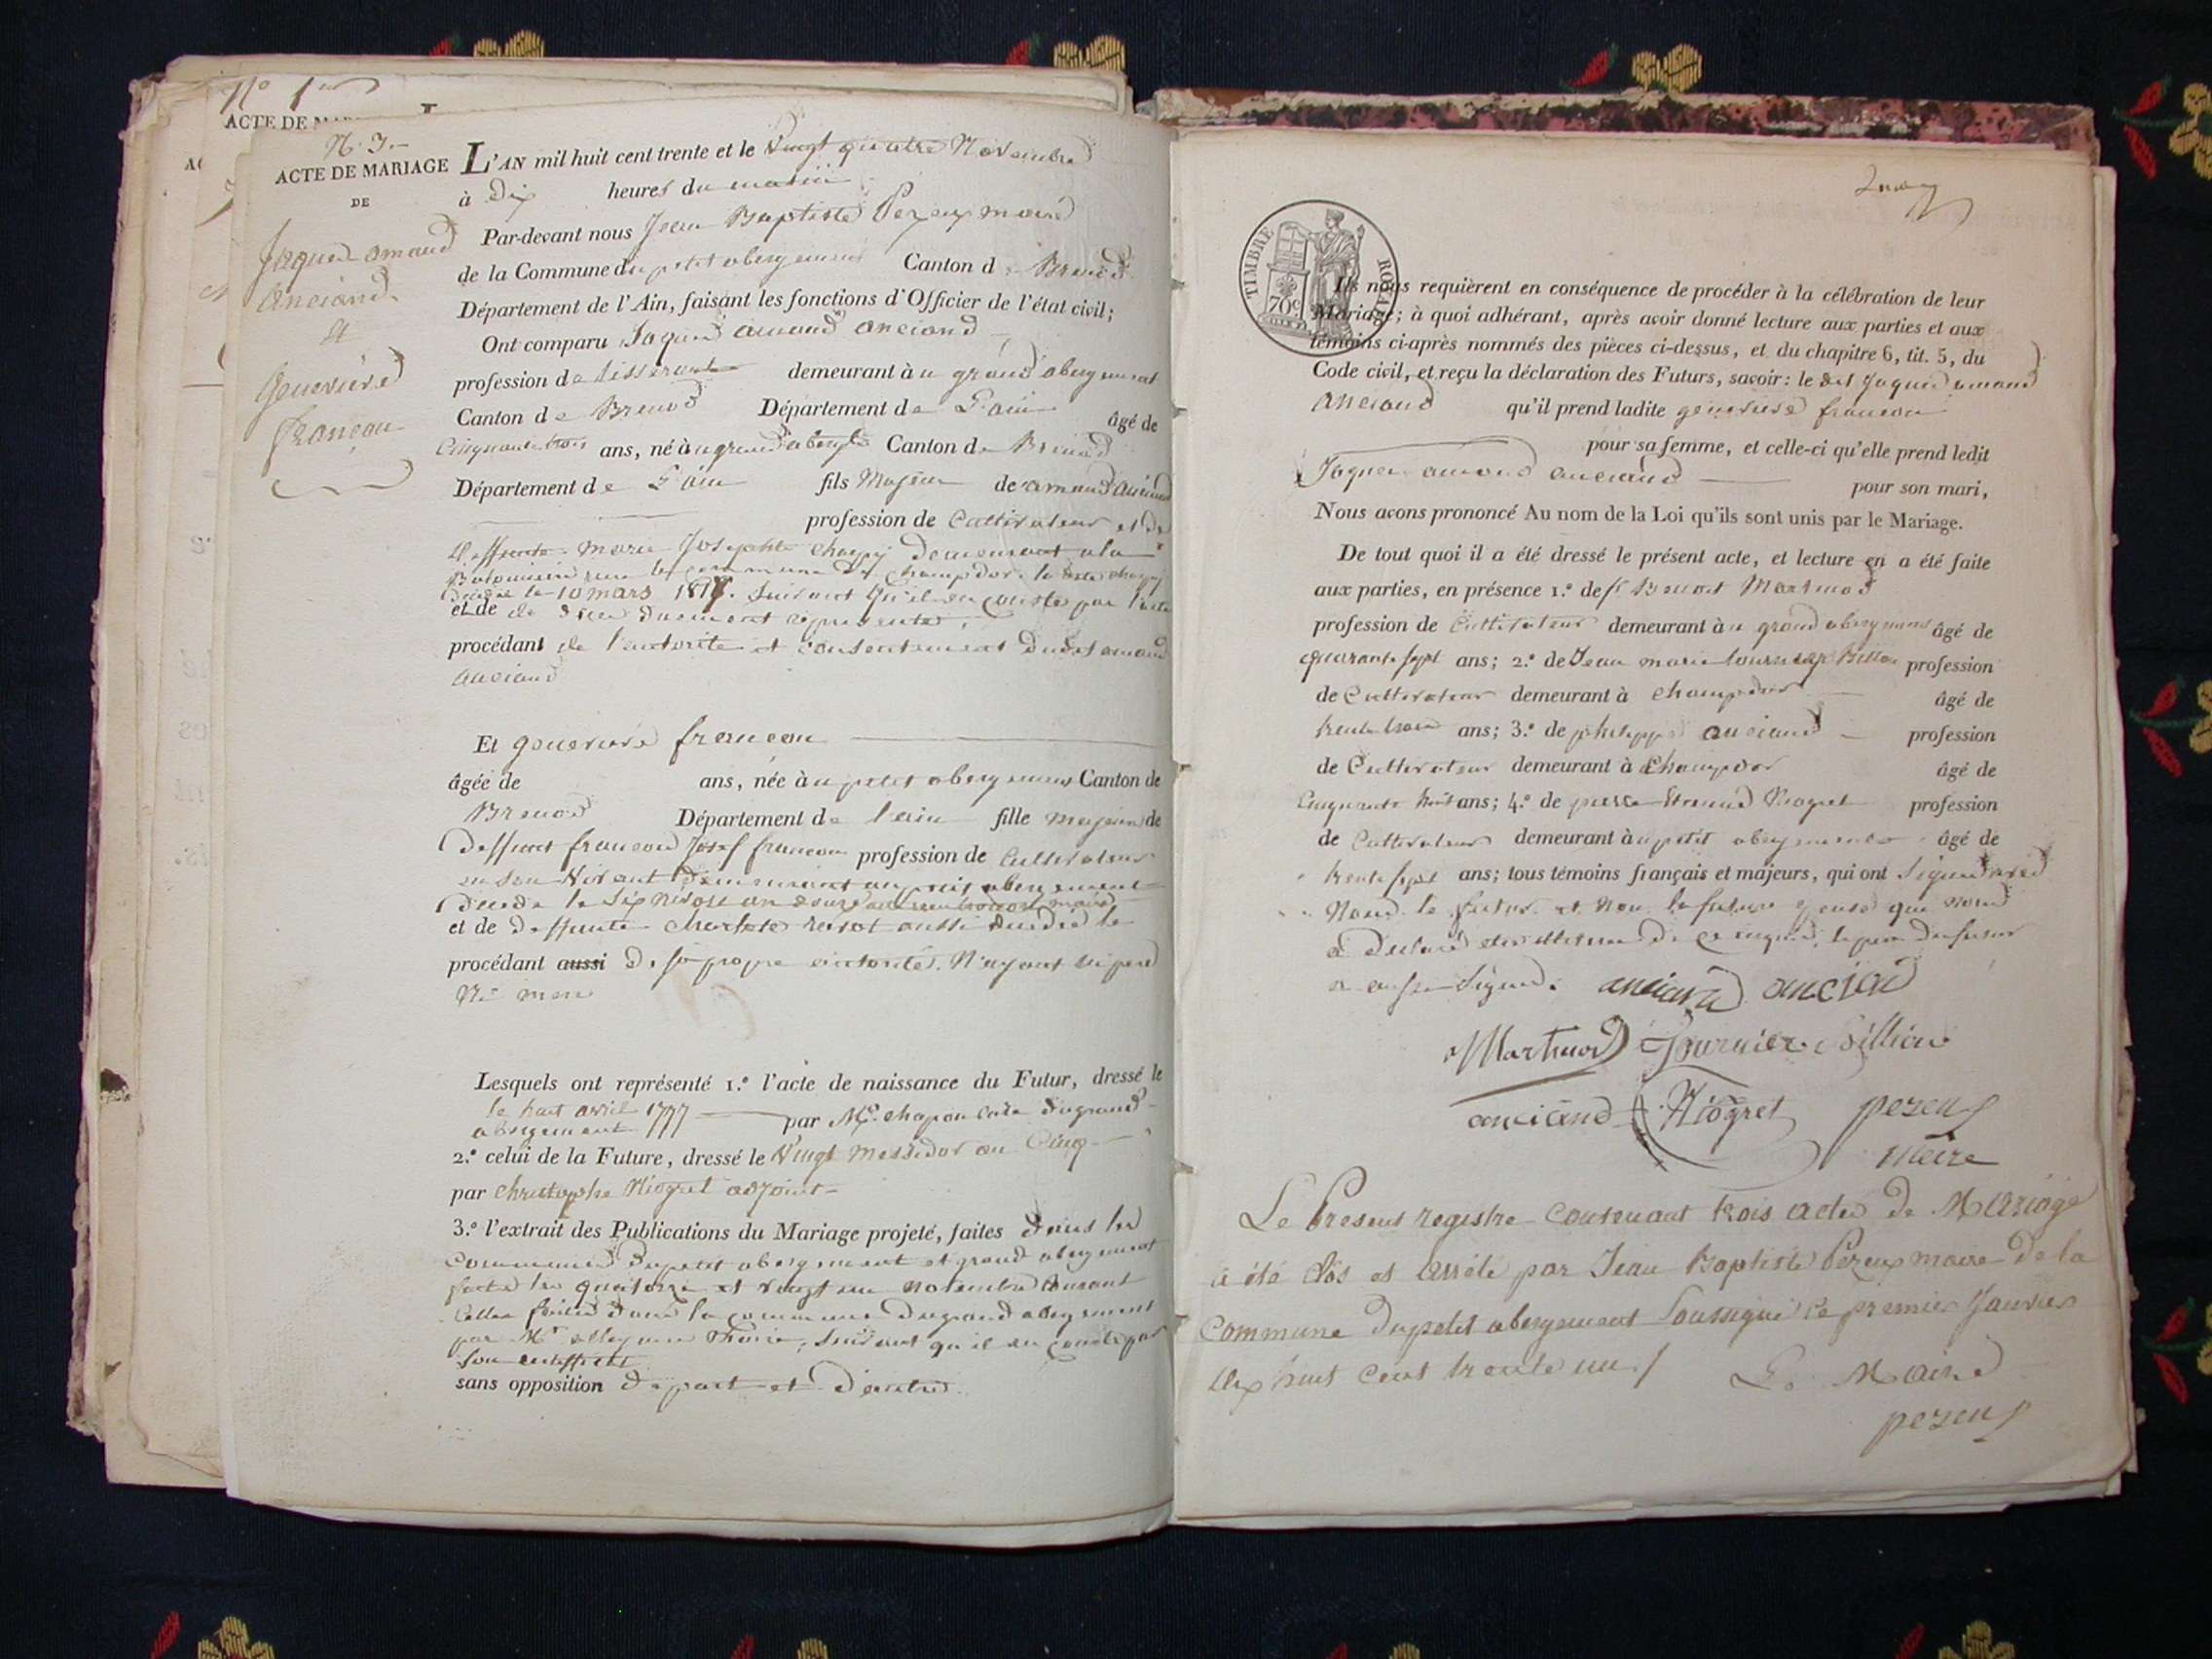 N° 1er
ACTE DE
N. 3.
ACTE DE MARIAGE
DE
Jaques amand
anciand
et
genevieve
françon
L'AN mil huit cent trente et le Vingt quatre Novembre
à Dix heures du matin
Par-devant nous Jean Baptiste Pezeux maire
de la Commune du petit abergement Canton de Brenod
Département de l'Ain, faisant les fonctions d'Officier de l'état civil;
Ont comparu Jaques amand anciand
profession de tisserant demeurant à u grand abergement
Canton de Brenod Département de L'ain âgé de
Cinquante trois ans, né à u grand abergt Canton de Brenod
Département de L'ain fils Majeur de amand anciand
profession de Cultivateur et de
deffunte marie Josephte chapuy demeurant a la
sur la commune de champdor la
décédée le 10 mars 181 . suivant qu'il en conste par l'acte
et de de deces duement représenté,
procédant de l'autorité et consentement dudit amand
anciand
Et genevieve françon
âgée de ans, née à u petit abergement Canton de
Brenod Département de l'ain fille majeure de
deffunt françois Josef françon profession de Cultivateur
en son vivant demeurant au petit abergement
décédé le six Nivose an douze
et de deffunte charlote aussi décédée le
procédant aussi de sa propre autorité. N'ayant ni pere
Ni mere
Lesquels ont représenté 1.° l'acte de naissance du Futur, dressé le
le huit avril 1777 par Mr. chapon curé du grand
abergement
2.° celui de la Future, dressé le Vingt messidor an Cinq
par christophe Niogret adjoint
3.° l'extrait des Publications du Mariage projeté, faites dans les
communes du petit abergement et grand abergement
faites les quatorze et vingt un novembre courant
celles faites dans la commune du grand abergement
par Mr maire, suivant qu'il en conste par
son certifficat
sans opposition de part et d'autre.
TIMBRE ROYAL
70c
Ils nous requièrent en conséquence de procéder à la célébration de leur
Mariage; à quoi adhérant, après avoir donné lecture aux parties et aux
témoins ci-après nommés des pièces ci-dessus, et du chapitre 6, tit. 5, du
Code civil, et reçu la déclaration des Futurs, savoir: le dit Jaques amand
anciand qu'il prend ladite genevieve françon
pour sa femme, et celle-ci qu'elle prend ledit
Jaques amand anciand pour son mari,
Nous avons prononcé Au nom de la Loi qu'ils sont unis par le Mariage.
De tout quoi il a été dressé le présent acte, et lecture en a été faite
aux parties, en présence 1.° de Benoit Martinod
profession de Cultivateur demeurant à u grand abergement âgé de
quarante sept ans; 2.° de Jean marie tournier Billion profession
de Cultivateur demeurant à champdor âgé de
trente trois ans; 3.° de philippe anciand profession
de Cultivateur demeurant à Champdor âgé de
Cinquante huit ans; 4.° de pierre Etienne Niogret profession
de Cultivateur demeurant à u petit abergement âgé de
trente sept ans; tous témoins français et majeurs, qui ont signé avec
Nous le futur et non la future epouse qui nous
a déclaré etre illiteree de ce enquise, le pere du futur
a aussi signé. anciand anciand
Martinod Tournier Billion
anciand Niogret pezeux
Meire
Le Present registre contenant trois actes de Mariage
a été Clos et arrêté par Jean Baptiste Pezeux maire de la
Commune du petit abergement soussigné ce premier Janvier
dix huit cent trente un
Le Maire
pezeux